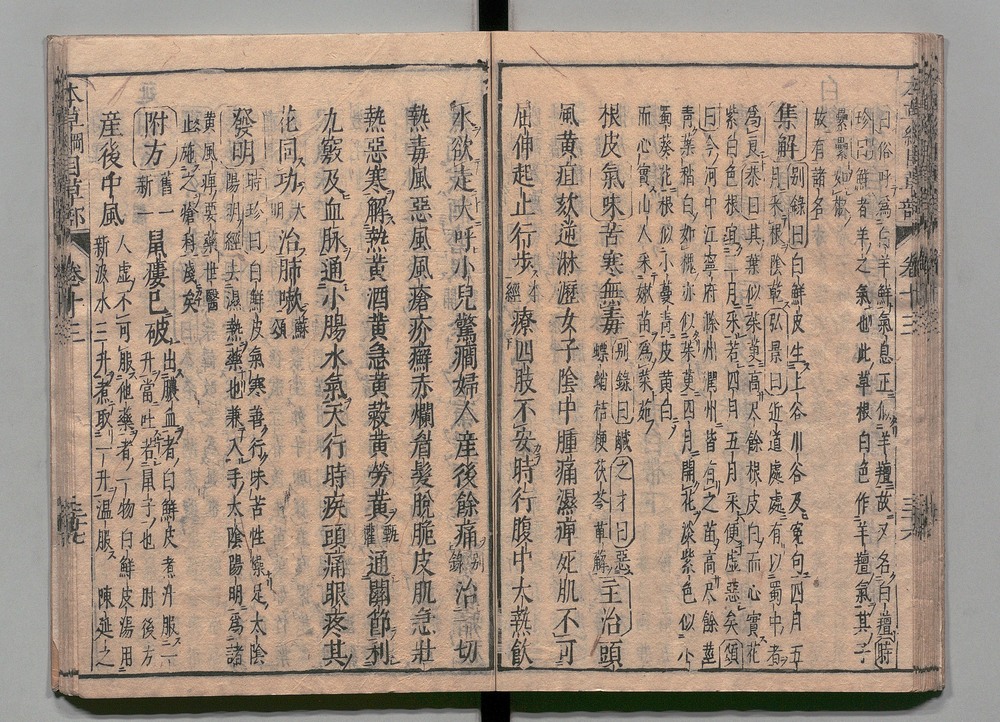 曰俗呼爲白羊鮮氣息正似羊羶故又名白羶時
珍曰鮮者羊之氣也此草根白色作羊羶氣其子
纍纍如椒
故有諸名
集解別錄曰白鮮皮生上谷川谷及冤句四月五
月采根陰乾弘景曰近道處處有以蜀中者
爲良恭曰其葉似茱萸高尺餘根皮白而心實花
紫白色根宜二月采若四月五月采便虛惡矣頌
曰今河中江寧府滁州潤州皆有之苗高尺餘莖
青葉稍白如槐亦似茱萸四月開花淡紫色似小
蜀葵花根似小蔓菁皮黃白
而心實山人采嫩苗爲菜茹
根皮氣味苦寒無毒別錄曰鹹之才曰惡
螵蛸桔梗茯苓萆薢主治頭
風黃疸欬逆淋瀝女子陰中腫痛濕痺死肌不可
屈伸起止行步本經療四肢不安時行腹中大熱飲
水欲走大呼小兒驚癇婦人產後餘痛別錄治一切
熱毒風惡風風瘡疥癬赤爛眉髮脫脆皮肌急壯
熱惡寒解熱黃酒黃急黃穀黃勞黃甄權通關節利
九竅及血脉通小腸水氣天行時疾頭痛眼疼其
花同功大明治肺嗽蘇頌
發明時珍曰白鮮皮氣寒善行味苦性燥足太陰
陽明經去濕熱藥也兼入手太陰陽明爲諸
黃風痺要藥世醫
止施之瘡科淺矣
附方舊一新一鼠瘻已破出膿血者白鮮皮煮汁服一
升當吐若鼠子也肘後方
產後中風人虛不可服他藥者一物白鮮皮湯用
新汲水三升煮取一升温服陳延之
本草綱目草部 卷十三